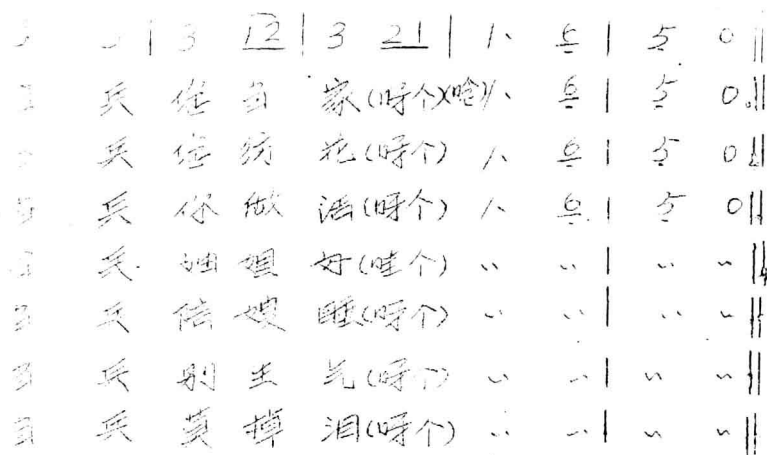 | 3 12 | 3 21 | 1· 6 | 5 0 ‖
兵 在 家(呀个)(哈) 1· 6 | 5 0 ‖
兵 纺 花(呀个) 1· 6 | 5 0 ‖
兵 你 做 活(呀个) 1· 6 | 5 0 ‖
兵 姐 好(哇个) 〃 〃 | 〃 〃 ‖
兵 陪 嫂 睡(呀个) 〃 〃 | 〃 〃 ‖
兵 别 生 气(呀个) 〃 〃 | 〃 〃 ‖
兵 莫 掉 泪(呀个) 〃 〃 | 〃 〃 ‖